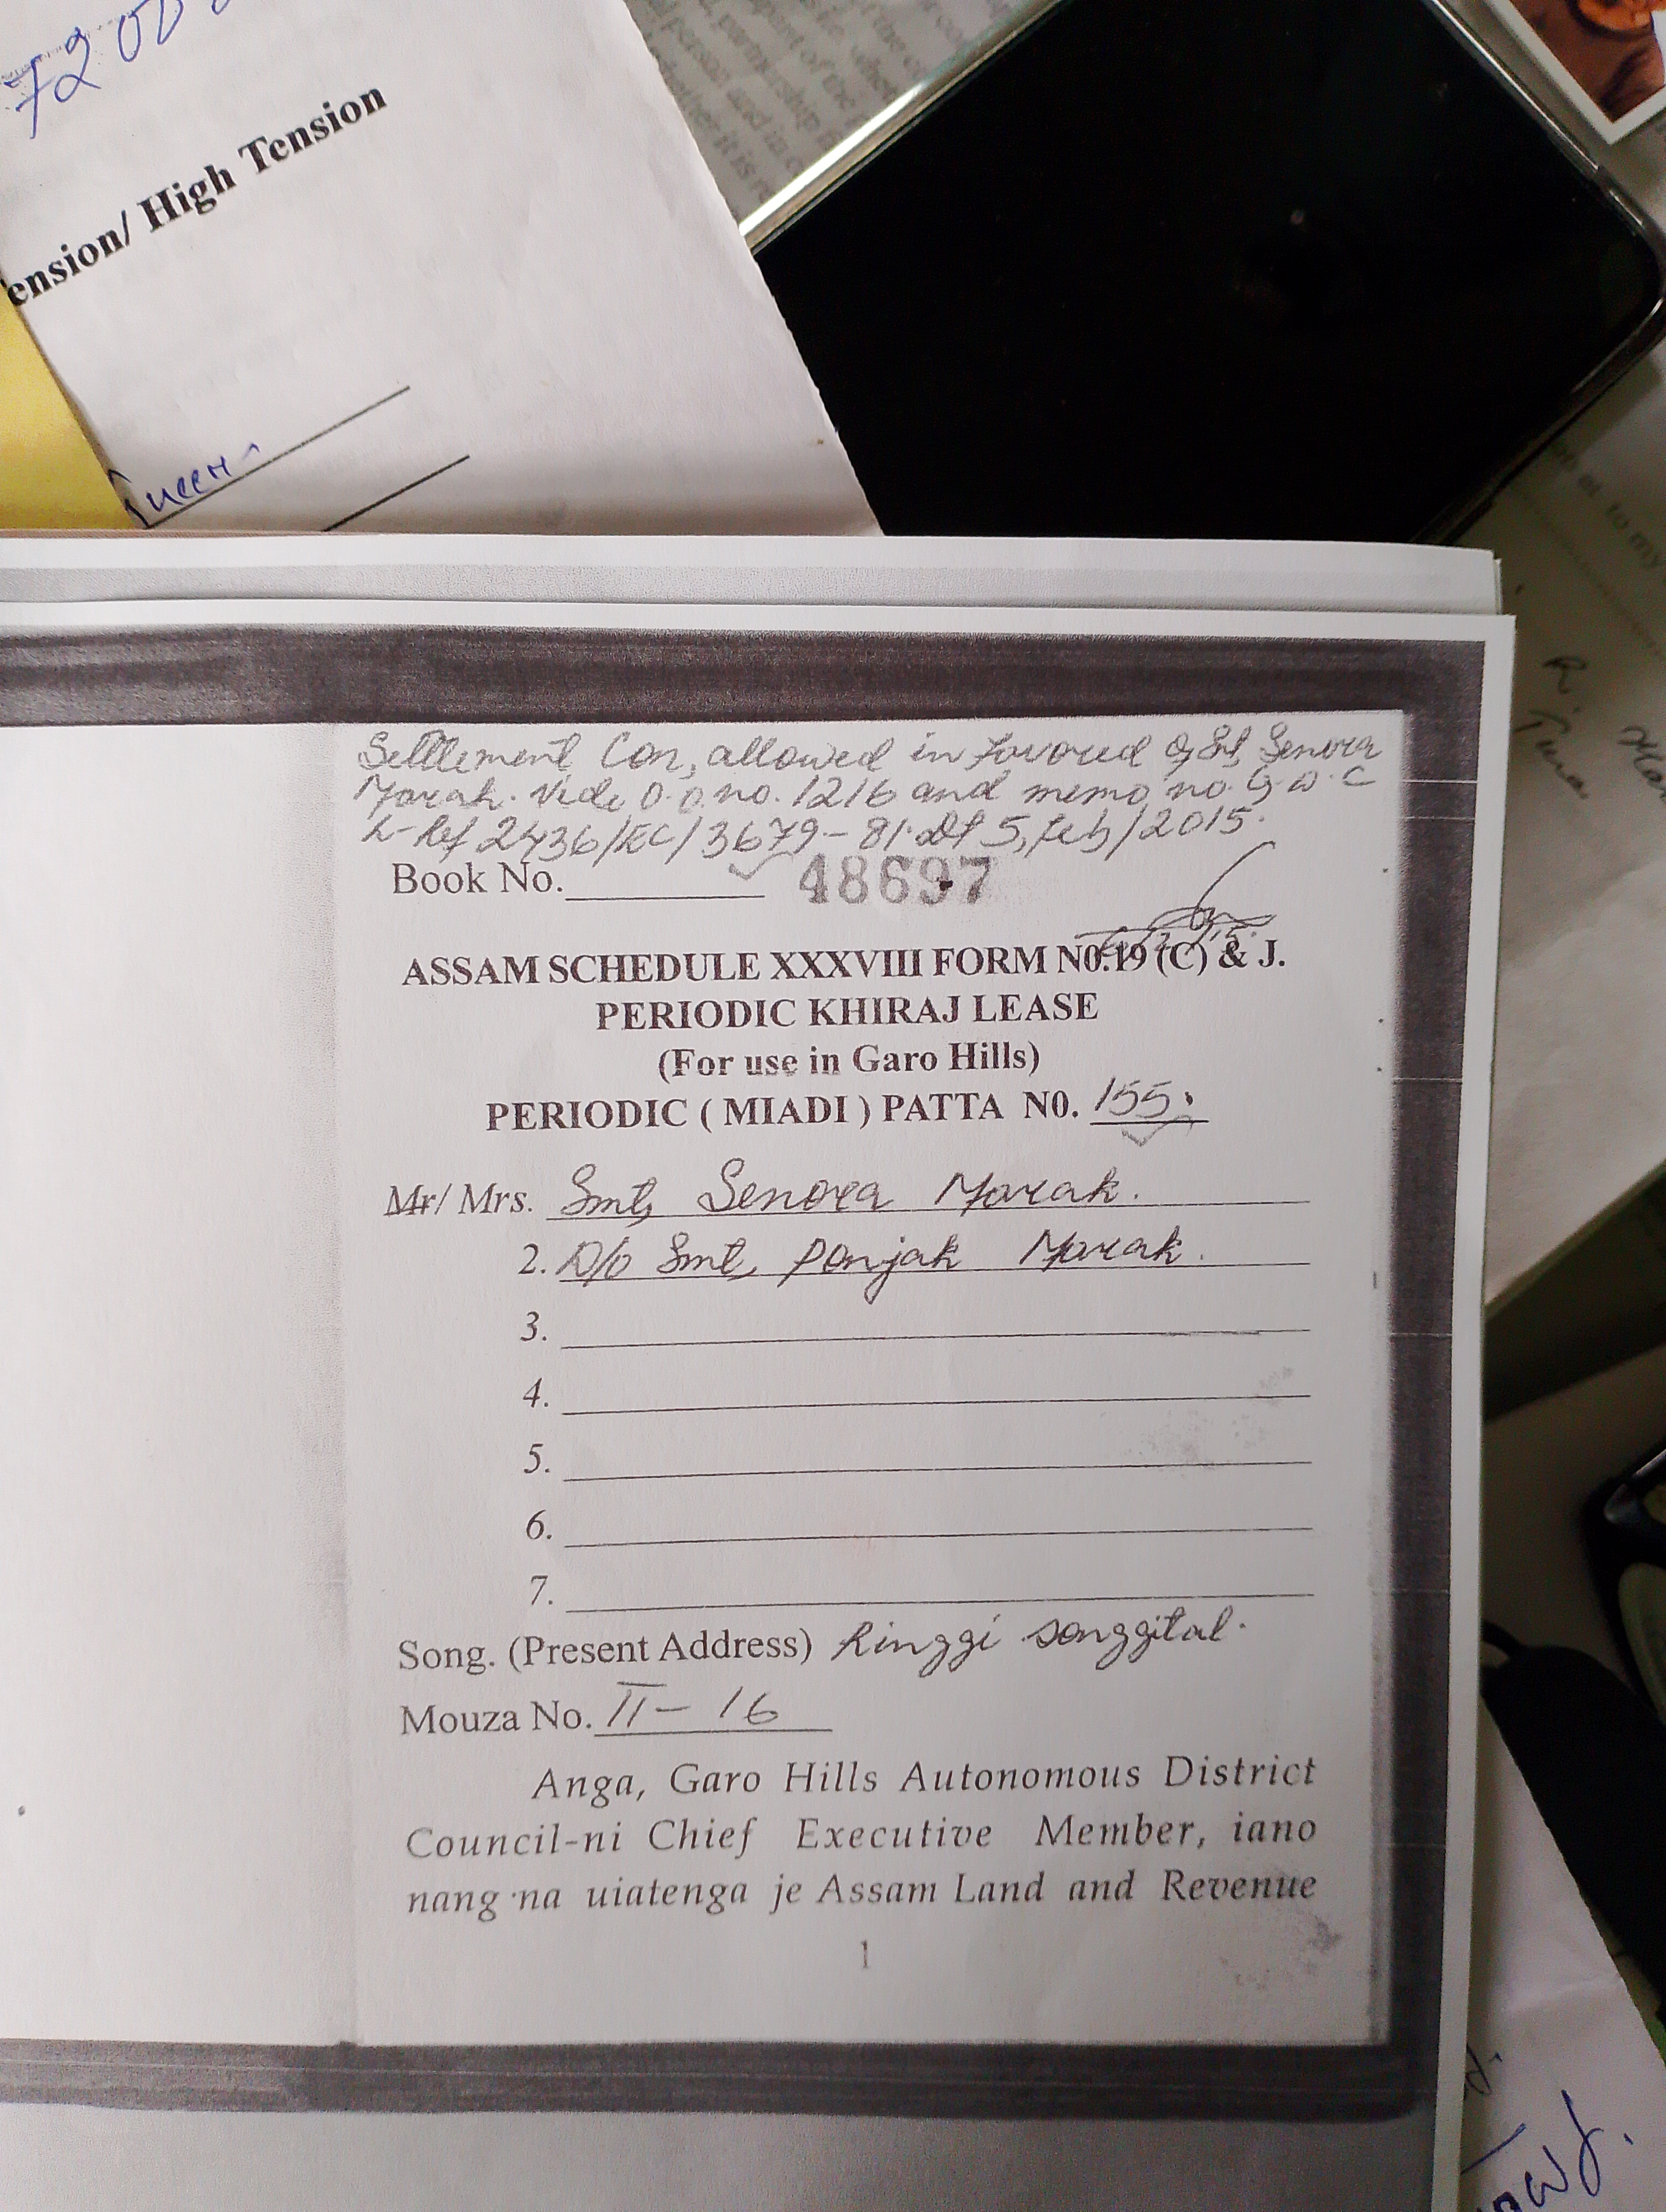 7200
ension/ High Tension
Settlement Con, allowed in Favored of Smt, Senora
Marak. Vide O.O. no. 1216 and memo, no. G.D.C
L-Ref 2436/EC/3679-81. Dt 5, Feb/2015.
Book No. 48697
ASSAM SCHEDULE XXXVIII FORM N0.19 (C) & J.
PERIODIC KHIRAJ LEASE
(For use in Garo Hills)
PERIODIC ( MIADI ) PATTA N0. 155.
Mr/ Mrs. Smt, Senora Marak.
2. D/o Smt, Ponjak Marak.
3.
4.
5.
6.
7.
Song. (Present Address) Ringgi songgital.
Mouza No. II - 16
Anga, Garo Hills Autonomous District
Council-ni Chief Executive Member, iano
nang·na uiatenga je Assam Land and Revenue
1